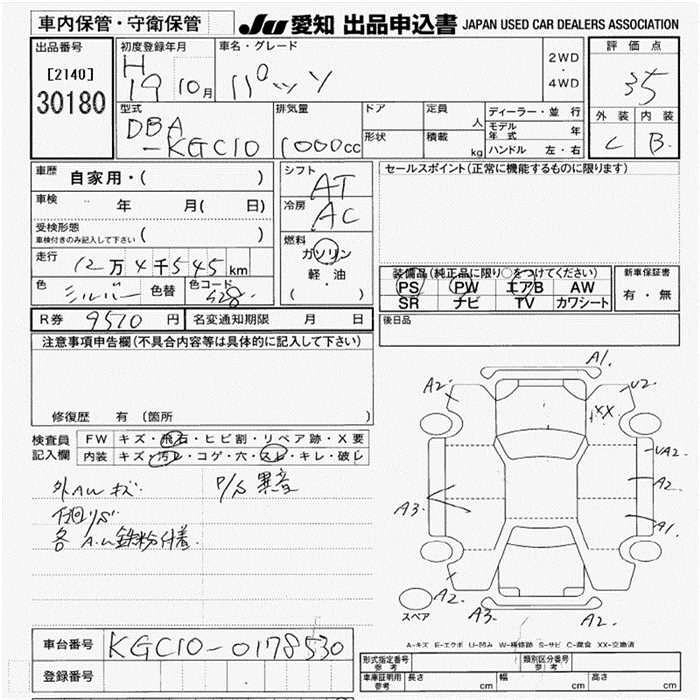 車内保管・守衛保管
JU 愛知 出品申込書 JAPAN USED CAR DEALERS ASSOCIATION
出品番号
[2140]
30180
初度登録年月
H
19 10月
車名・グレード
パッソ
2WD
・
4WD
評価点
3.5
外装 内装
C B
型式
DBA
-KGC10
排気量
1000cc
ドア
形状
定員
人
積載
kg
ディーラー・並行
モデル年式 年
ハンドル 左・右
車歴
自家用・( )
車検
年 月( 日)
受検形態
車検付きのみ記入して下さい ( )
走行
12万4千545km
色
シルバー
色替
色コード
S28
シフト
AT
冷房
AC
燃料
ガソリン
軽・油
( ・ )
セールスポイント(正常に機能するものに限ります)
装備品(純正品に限り○をつけてください)
PS PW エアB AW
SR ナビ TV カワシート
新車保証書
有・無
R券 9510 円
名変通知期限 月 日
後日品
注意事項申告欄(不具合内容等は具体的に記入して下さい)
修復歴 有(箇所 )
検査員
記入欄
FW キズ・飛石・ヒビ割・リペア跡・X要
内装 キズ・汚レ・コゲ・穴・スレ・キレ・破レ
外AW キズ
P/S 異音
下廻りS
各 A.W 鉄粉付着
A1
A2
U2
XX
UA2
A2
A1
A3
A2
A3
A2
スペア
A-キズ E-エクボ U-凹み W-補修跡 S-サビ C-腐食 XX-交換済
車台番号
KGC10-0178530
登録番号
形式指定番号
参考
類別区分番号
参考
車庫証明用
参考
長さ cm
幅 cm
高さ cm